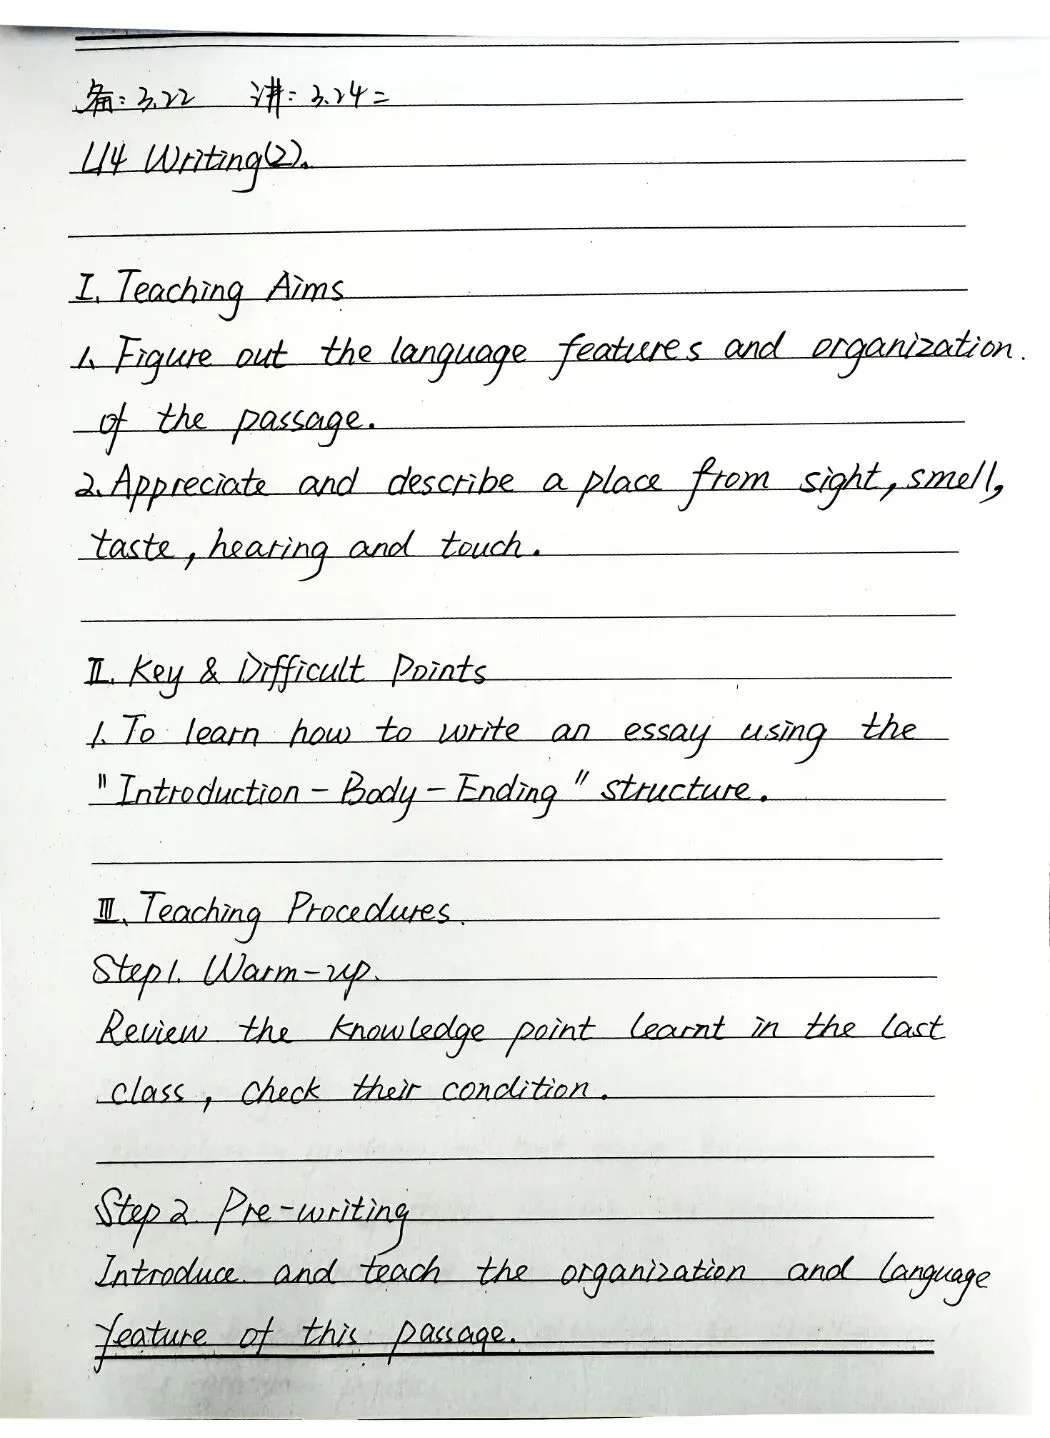 备:3.22 讲:3.24二
U4 Writing(2).
I. Teaching Aims
1. Figure out the language features and organization.
of the passage.
2. Appreciate and describe a place from sight, smell,
taste, hearing and touch.
II. Key & Difficult Points
1. To learn how to write an essay using the
"Introduction - Body - Ending" structure.
III. Teaching Procedures.
Step1. Warm-up.
Review the knowledge point learnt in the last
class, check their condition.
Step 2. Pre-writing
Introduce and teach the organization and language
feature of this passage.